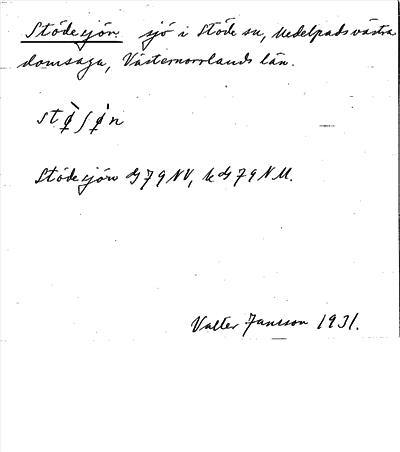 Stödesjön sjö i Stöde sn, Medelpads västra
domsaga, Västernorrlands län.
stø̀ʃø̍n
Stödesjön dj 79 NV, k dj 79 NM.
Valter Jansson 1931.